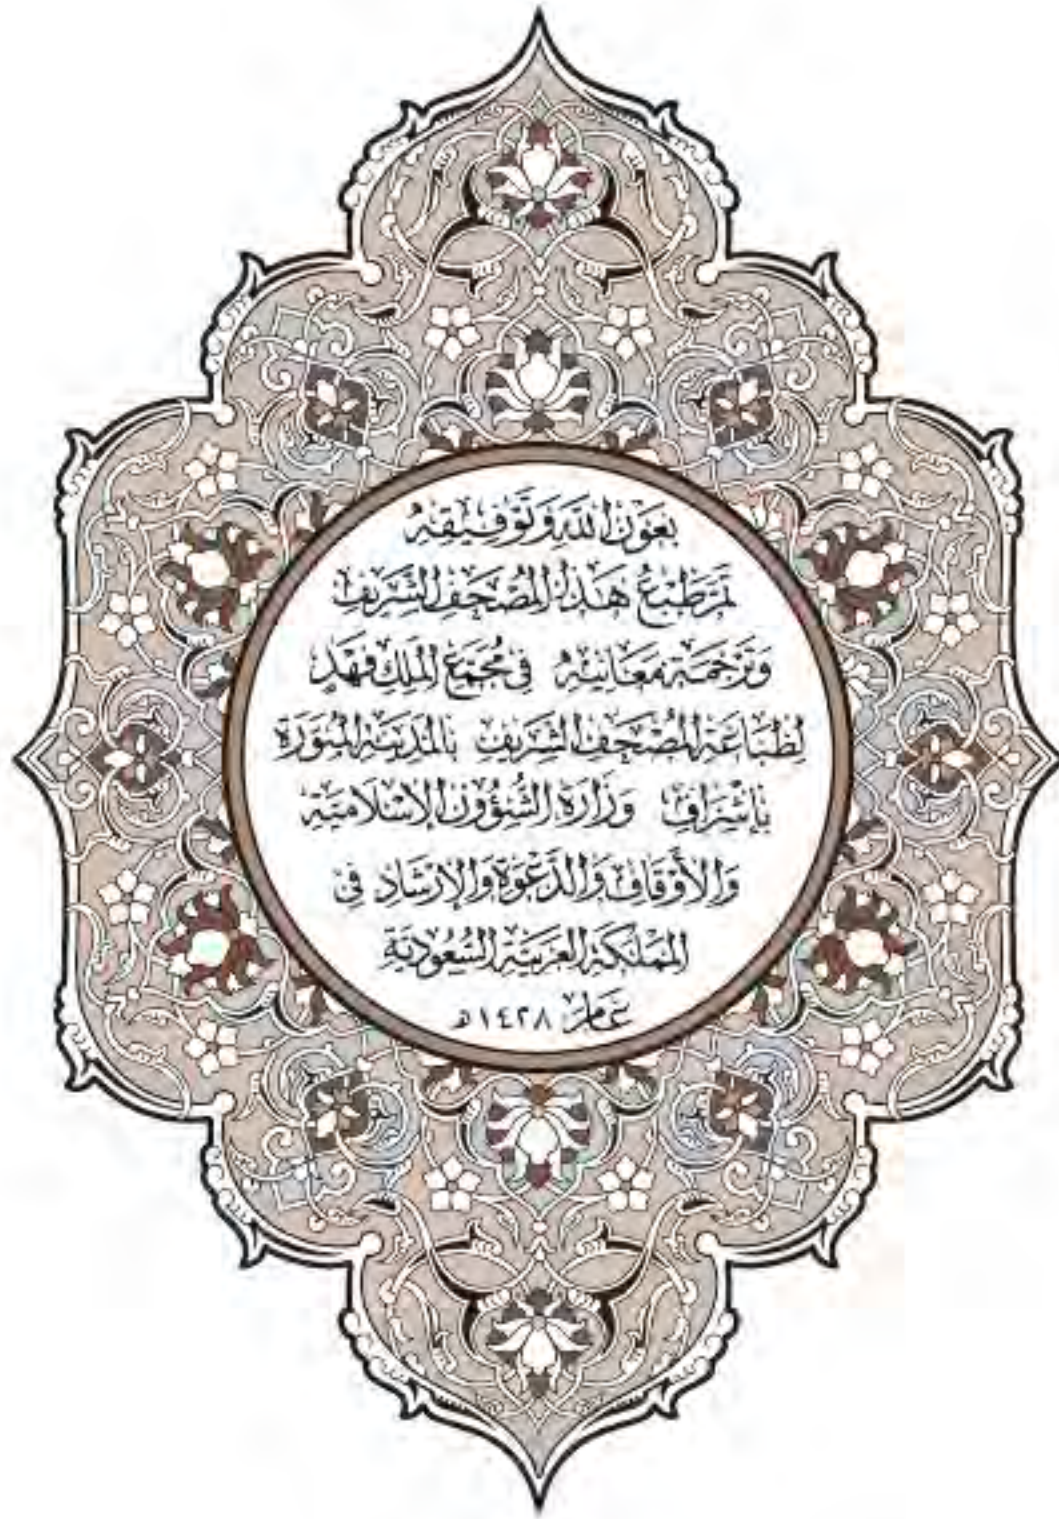 بعَون الله وَتَوفيقِهِ
تم طبْعُ هَذا المُصْحَفِ الشَّريفِ
وَتَرْجَمَة مَعَانيْه في مُجَمَّع المَلِك فَهَد
لِطبَاعَة المُصْحَف الشريف بالمَدينَة المُنَوَّرَة
بإشْرَاف وَزارَة الشُؤُون الإسْلاميّة
وَالأوْقاف وَالدَّعْوَة وَالإرْشَاد في
المَمْلَكة العَرَبيَّة السُّعُوديَّة
عَام ١٤٢٨ هـ